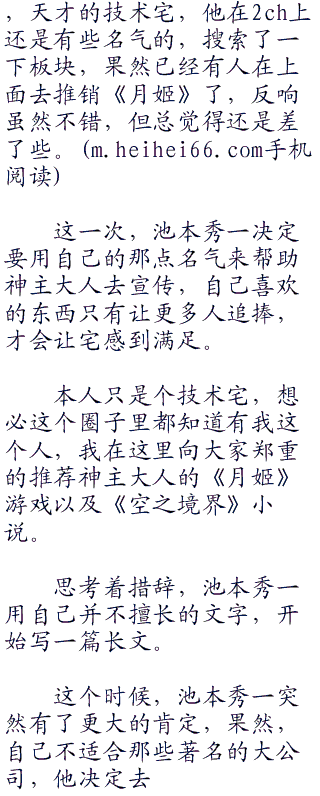 ，天才的技术宅，他在2ch上
还是有些名气的，搜索了一
下板块，果然已经有人在上
面去推销《月姬》了，反响
虽然不错，但总觉得还是差
了些。(m.heihei66.com手机
阅读)
这一次，池本秀一决定
要用自己的那点名气来帮助
神主大人去宣传，自己喜欢
的东西只有让更多人追捧，
才会让宅感到满足。
本人只是个技术宅，想
必这个圈子里都知道有我这
个人，我在这里向大家郑重
的推荐神主大人的《月姬》
游戏以及《空之境界》小
说。
思考着措辞，池本秀一
用自己并不擅长的文字，开
始写一篇长文。
这个时候，池本秀一突
然有了更大的肯定，果然，
自己不适合那些著名的大公
司，他决定去